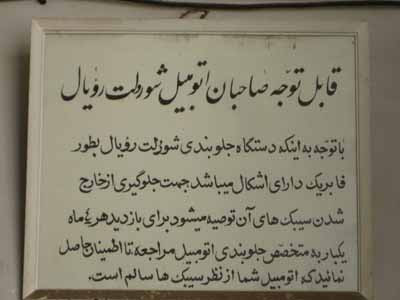 قابل توجّه صاحبان اتومبیل شورلت رؤیال
با توجّه به اینکه دستگاه جلوبندی شورلت رؤیال بطور
فابریک دارای اشکال میباشد جهت جلوگیری از خارج
شدن سیبک های آن توصیه میشود برای بازدید هر ٤ ماه
یکبار به متخصّص جلوبندی اتومبیل مراجعه تا اطمینان حاصل
نمائید که اتومبیل شما از نظر سیبک ها سالم است.